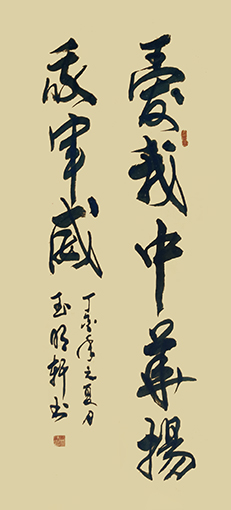 愛我中華揚
我軍威
丁亥年之夏月
玉明軒书